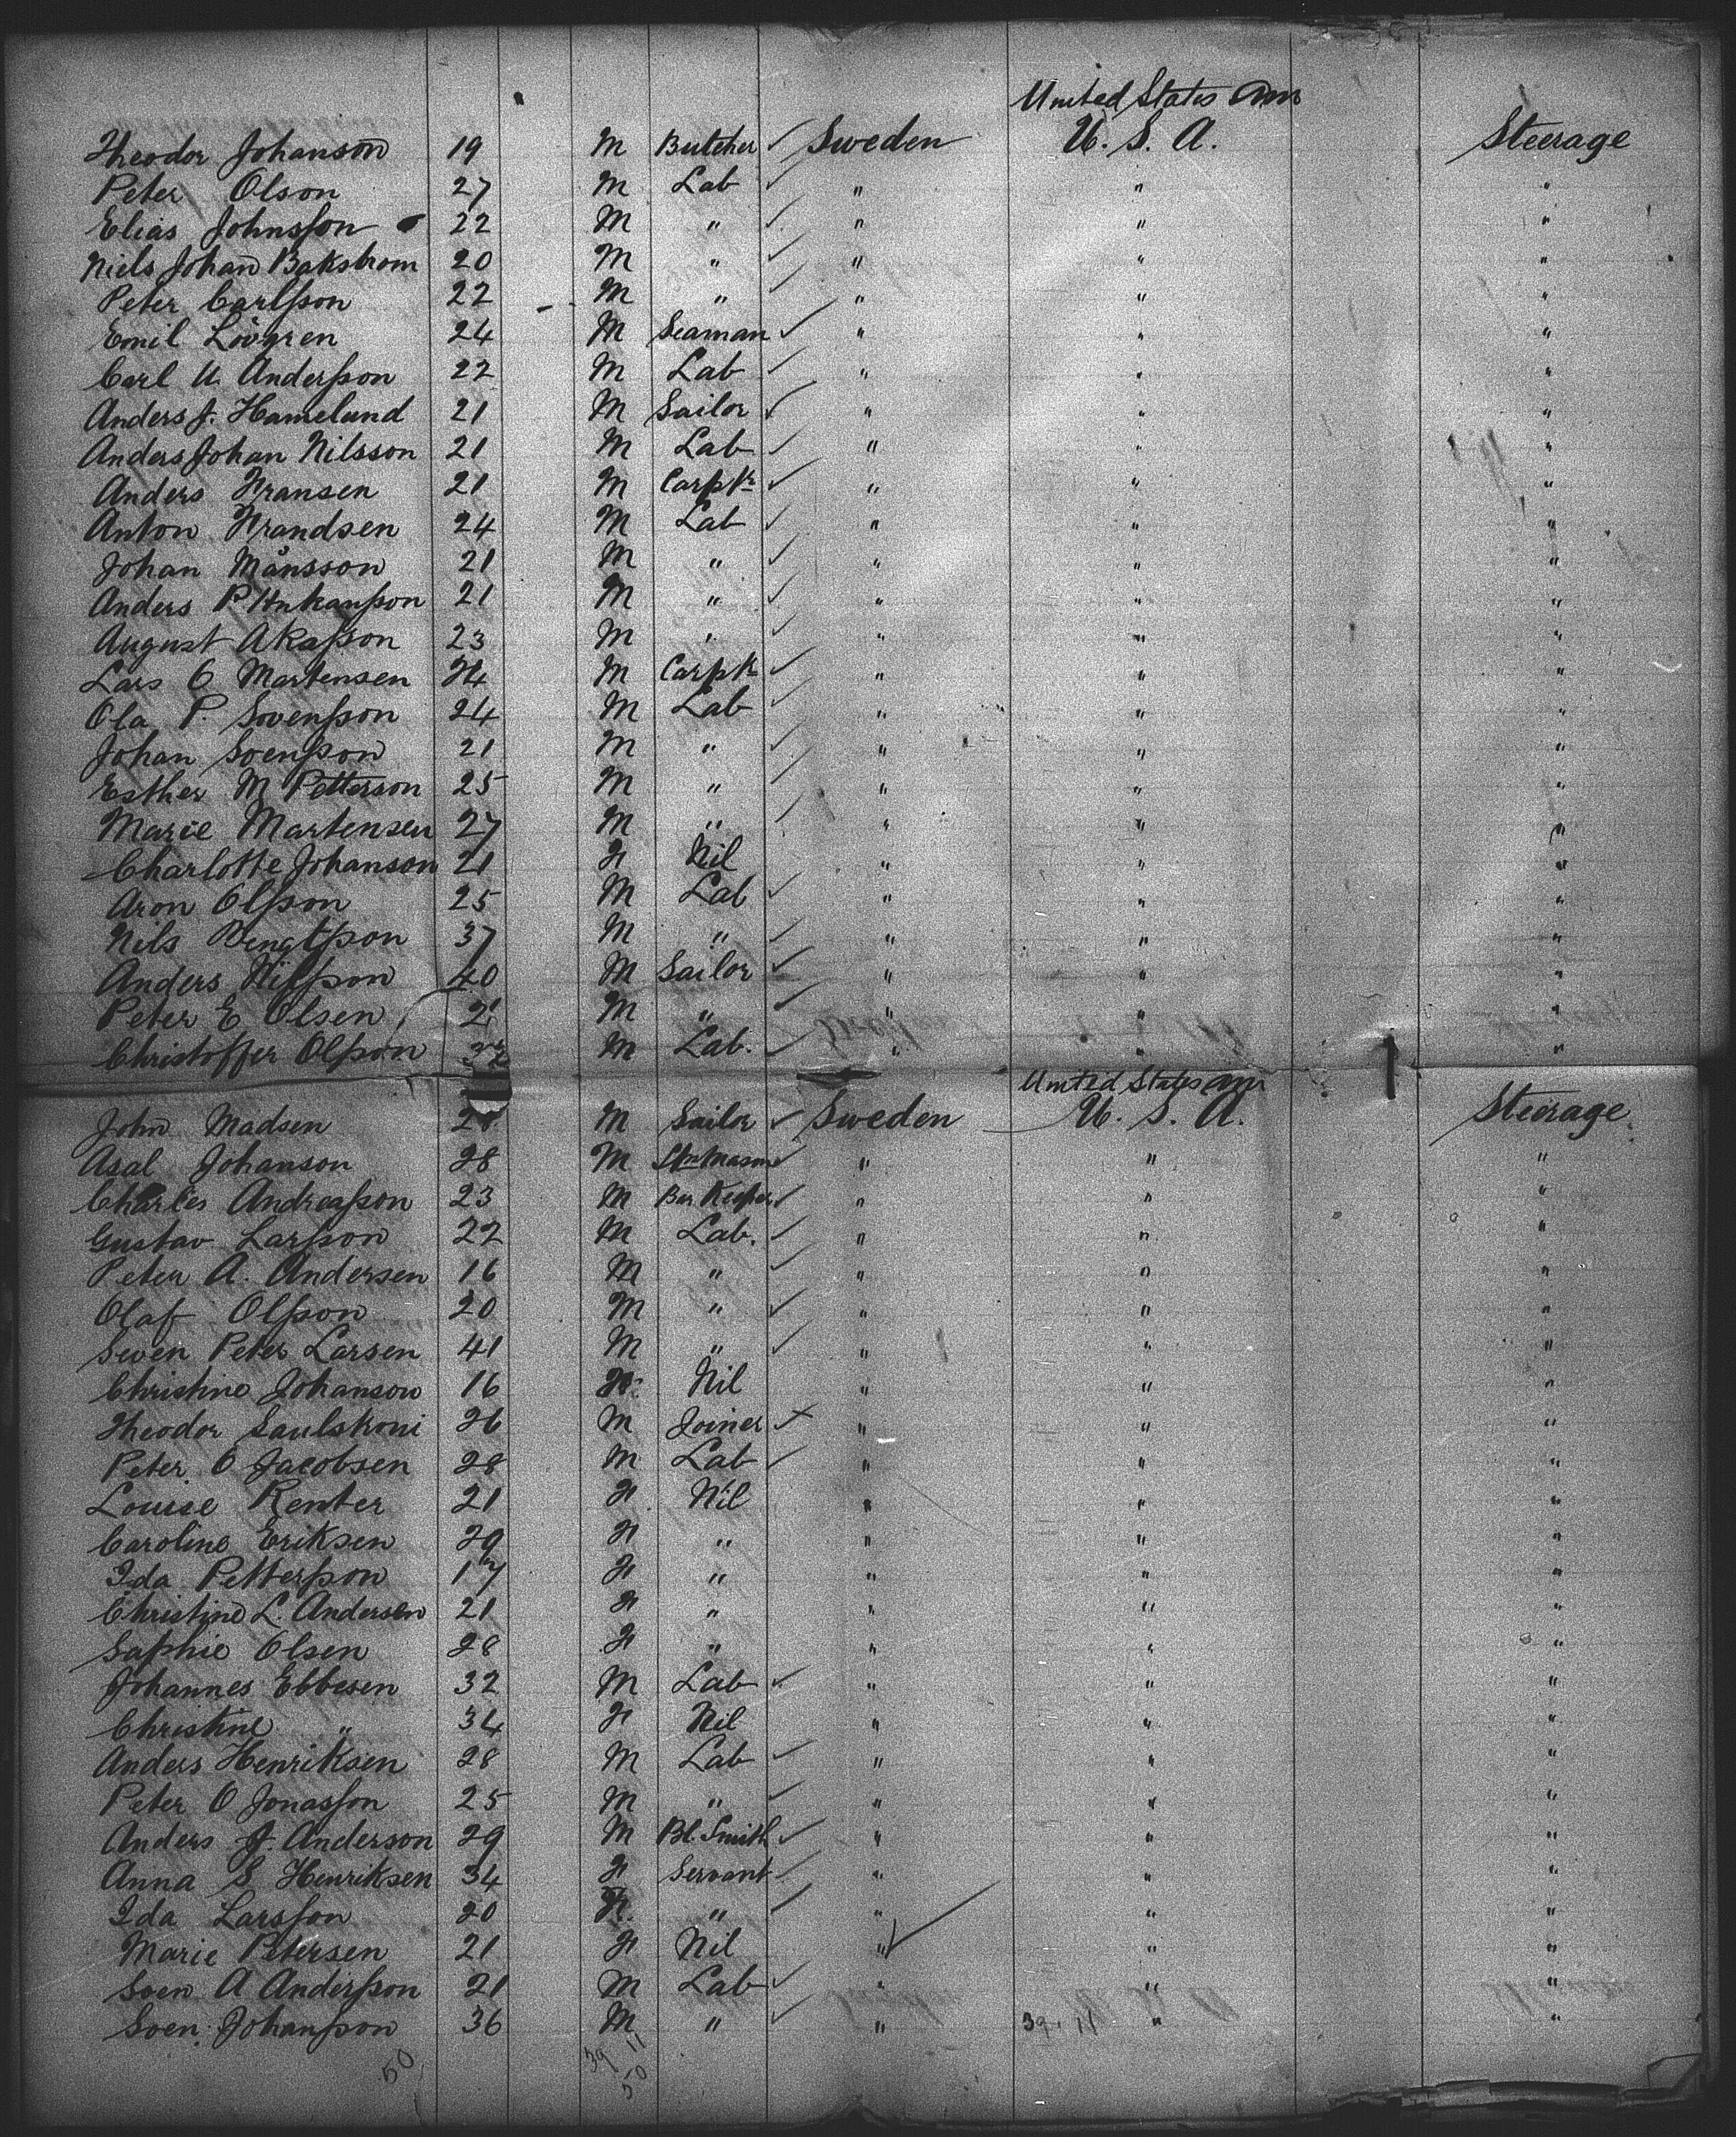 United States Am
Theodor Johanson 19 M Butcher ✓ Sweden U. S. A. Steerage
Peter Olson 27 M Lab ✓ " " "
Elias Johnsson 22 M " ✓ " " "
Niels Johan Bakstrom 20 M " ✓ " " "
Peter Carlsson 22 M " ✓ " " "
Emil Lövgren 24 M Seaman ✓ " " "
Carl U. Andersson 22 M Lab ✓ " " "
Anders J. Hamelund 21 M Sailor ✓ " " "
Anders Johan Nilsson 21 M Lab ✓ " " "
Anders Fransen 21 M Carptr ✓ " " "
Anton Frandsen 24 M Lab ✓ " " "
Johan Månsson 21 M " ✓ " " "
Anders P 21 M " ✓ " " "
August Akasson 23 M " ✓ " " "
Lars O Martensen 24 M Carptr ✓ " " "
Ola P. Svensson 24 M Lab ✓ " " "
Johan Svensson 21 M " ✓ " " "
Esther M Petterson 25 M " ✓ " " "
Marie Martensen 27 M " ✓ " " "
Charlotte Johanson 21 F Nil " " "
Aron Olsson 25 M Lab ✓ " " "
Nils Bengtsson 37 M " ✓ " " "
Anders Nilsson 40 M Sailor ✓ " " "
Peter E Olsen M " ✓ " " "
Christoffer Olsson M Lab. ✓ " " "
United States Am
John Madsen M Sailor ✓ Sweden U. S. A. Steerage
Asal Johanson 28 M Stn Mason ✓ " " "
Charles Andreasson 23 M Bar Keeper ✓ " " "
Gustav Larsson 22 M Lab. ✓ " " "
Peter A. Andersen 16 M " ✓ " " "
Olaf Olsson 20 M " ✓ " " "
Swen Peter Larsen 41 M " ✓ " " "
Christine Johanson 16 F Nil " " "
Theodor Saulskoni 26 M Joiner ✓ " " "
Peter O Jacobsen 28 M Lab ✓ " " "
Louise Renter 21 F Nil " " "
Caroline Eriksen 29 F " " " "
Ida Pettersson 17 F " " " "
Christine L. Andersen 21 F " " " "
Saphie Olsen 28 F " " " "
Johannes Ebbesen 32 M Lab ✓ " " "
Christine " 34 F Nil " " "
Anders Henriksen 28 M Lab ✓ " " "
Peter O Jonasson 25 M " ✓ " " "
Anders J. Anderson 29 M Bl. Smith ✓ " " "
Anna S Henriksen 34 F Servant ✓ " " "
Ida Larsson 20 F. " ✓ " " "
Marie Petersen 21 F Nil " ✓ " "
Sven A Andersson 21 M Lab ✓ " " "
Sven Johansson 36 M " ✓ " 39 11 " "
50 39 11
50